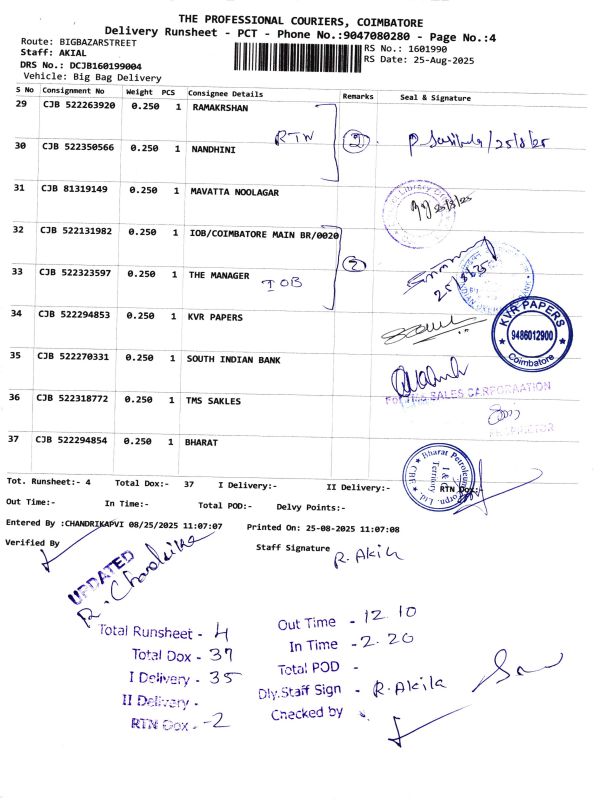 THE PROFESSIONAL COURIERS, COIMBATORE
Delivery Runsheet - PCT - Phone No.:9047080280 - Page No.:4
Route: BIGBAZARSTREET
RS No.: 1601990
Staff: AKIAL
RS Date: 25-Aug-2025
DRS No.: DCJB160199004
Vehicle: Big Bag Delivery
S No Consignment No Weight PCS Consignee Details Remarks Seal & Signature
29 CJB 522263920 0.250 1 RAMAKRSHAN
RTN 2 25/8/25
30 CJB 522350566 0.250 1 NANDHINI
31 CJB 81319149 0.250 1 MAVATTA NOOLAGAR
Library
32 CJB 522131982 0.250 1 IOB/COIMBATORE MAIN BR/0020
2
33 CJB 522323597 0.250 1 THE MANAGER
IOB
25/8/25
34 CJB 522294853 0.250 1 KVR PAPERS
KVR PAPERS
9486012900
Coimbatore
35 CJB 522270331 0.250 1 SOUTH INDIAN BANK
For TMS SALES CARPORAATION
36 CJB 522318772 0.250 1 TMS SAKLES
PROPRIETOR
37 CJB 522294854 0.250 1 BHARAT
Bharat Petroleum Corpn. Ltd.
I & C
Territory
CBE
Tot. Runsheet:- 4 Total Dox:- 37 I Delivery:- II Delivery:- RTN Dox:-
Out Time:- In Time:- Total POD:- Delvy Points:-
Entered By :CHANDRIKAPVI 08/25/2025 11:07:07 Printed On: 25-08-2025 11:07:08
Verified By Staff Signature R. Akila
UPDATED
R. Chandrika
Total Runsheet - 4
Total Dox - 37
I Delivery - 35
II Delivery -
RTN Dox - 2
Out Time - 12.10
In Time - 2.20
Total POD -
Dly.Staff Sign - R. Akila
Checked by